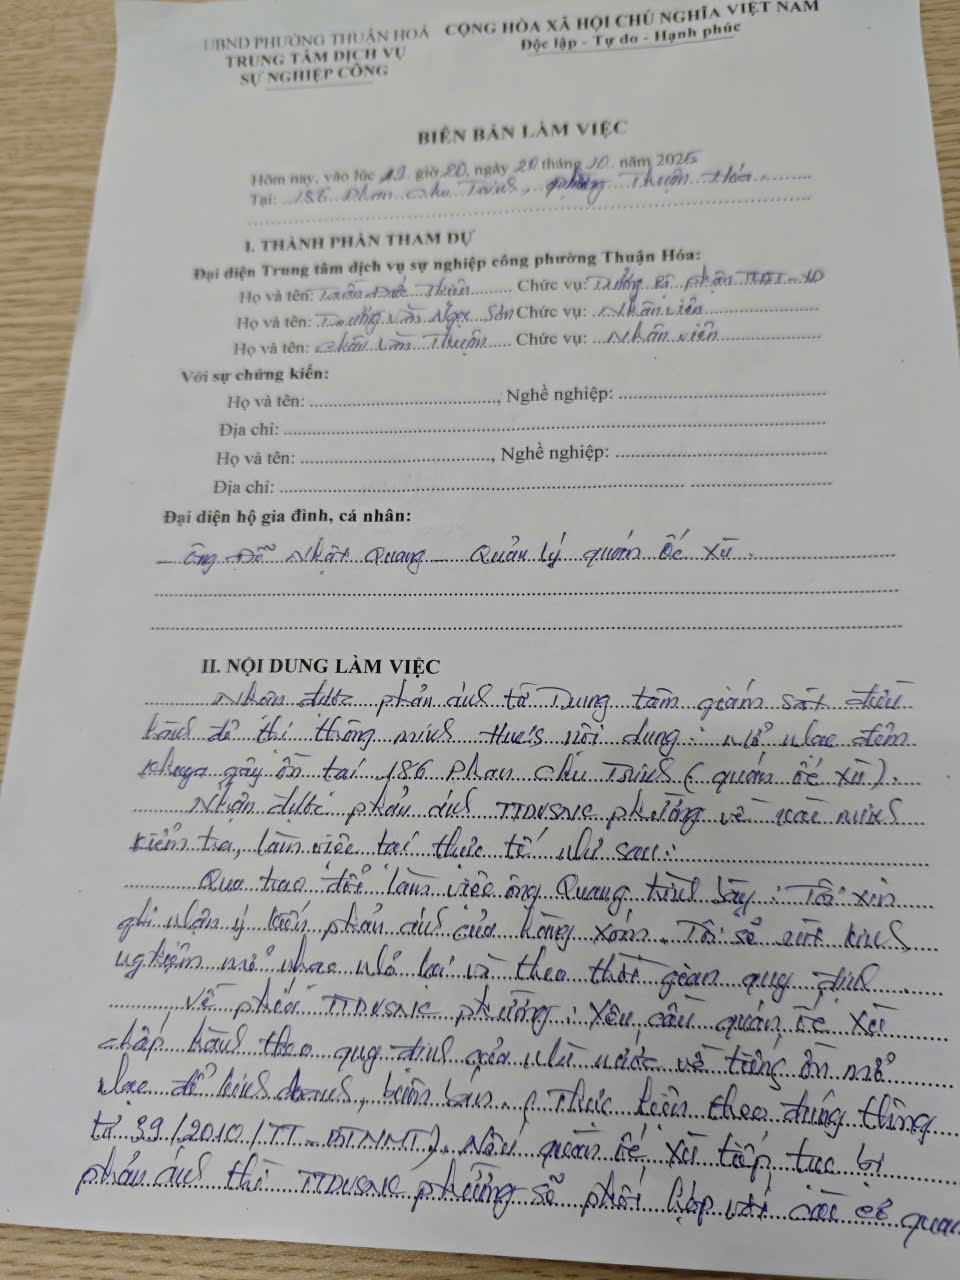 UBND PHƯỜNG THUẬN HOÁ CỘNG HÒA XÃ HỘI CHỦ NGHĨA VIỆT NAM
TRUNG TÂM DỊCH VỤ Độc lập - Tự do - Hạnh phúc
SỰ NGHIỆP CÔNG
BIÊN BẢN LÀM VIỆC
Hôm nay, vào lúc 19 giờ 20, ngày 20 tháng 10 năm 2025
Tại: 186 Phan Chu Trinh, phường Thuận Hóa
I. THÀNH PHẦN THAM DỰ
Đại diện Trung tâm dịch vụ sự nghiệp công phường Thuận Hóa:
Họ và tên: Đức Chức vụ: Trưởng Bộ phận
Họ và tên: Trương Văn Ngọc Sơn Chức vụ: Nhân viên
Họ và tên: Châu Văn Thuận Chức vụ: Nhân viên
Với sự chứng kiến:
Họ và tên: , Nghề nghiệp:
Địa chỉ:
Họ và tên: , Nghề nghiệp:
Địa chỉ:
Đại diện hộ gia đình, cá nhân:
- Ông Đỗ Nhật Quang - Quản lý quán Ế Xừ.
II. NỘI DUNG LÀM VIỆC
Nhận được phản ánh từ Trung tâm giám sát điều
hành đô thị thông minh Hue's nội dung: mở nhạc đêm
khuya gây ồn tại 186 Phan Chu Trinh (quán Ế Xừ).
Nhận được phản ánh TTDVSNC phường về xác minh
kiểm tra, làm việc tại thực tế như sau:
Qua trao đổi làm việc ông Quang trình bày: Tôi xin
ghi nhận ý kiến phản ánh của hàng xóm. Tôi sẽ rút kinh
nghiệm mở nhạc nhỏ lại và theo thời gian quy định.
Về phía TTDVSNC phường: Yêu cầu quán Ế Xừ
chấp hành theo quy định của nhà nước về tiếng ồn mở
nhạc để kinh doanh, buôn bán. (Thực hiện theo đúng thông
tư 39/2010/TT-BTNMT). Nếu quán Ế Xừ tiếp tục bị
phản ánh thì TTDVSNC phường sẽ phối hợp với các cơ quan